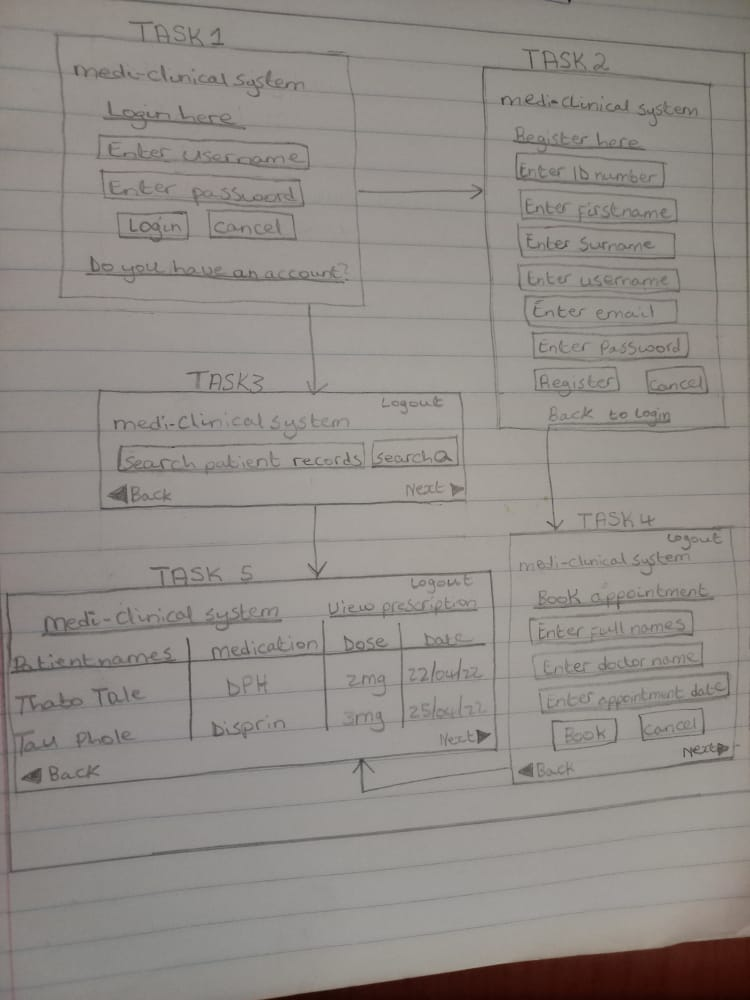 TASK 1
medi-clinical system
Login here
Enter username
Enter password
Login Cancel
Do you have an account?
TASK 2
medi-clinical system
Register here
Enter ID number
Enter firstname
Enter surname
Enter username
Enter email
Enter Password
Register Cancel
Back to login
TASK3
Logout
medi-clinical system
Search patient records Search
Back Next
TASK 4
Logout
medi-clinical system
Book appointment
Enter Full names
Enter doctor name
Enter appointment date
Book Cancel
Next
Back
TASK 5
Logout
medi-clinical system View prescription
Patient names medication Dose Date
Thabo Tale DPH 2mg 22/04/22
Tau Phole Disprin 3mg 25/04/22
Next
Back